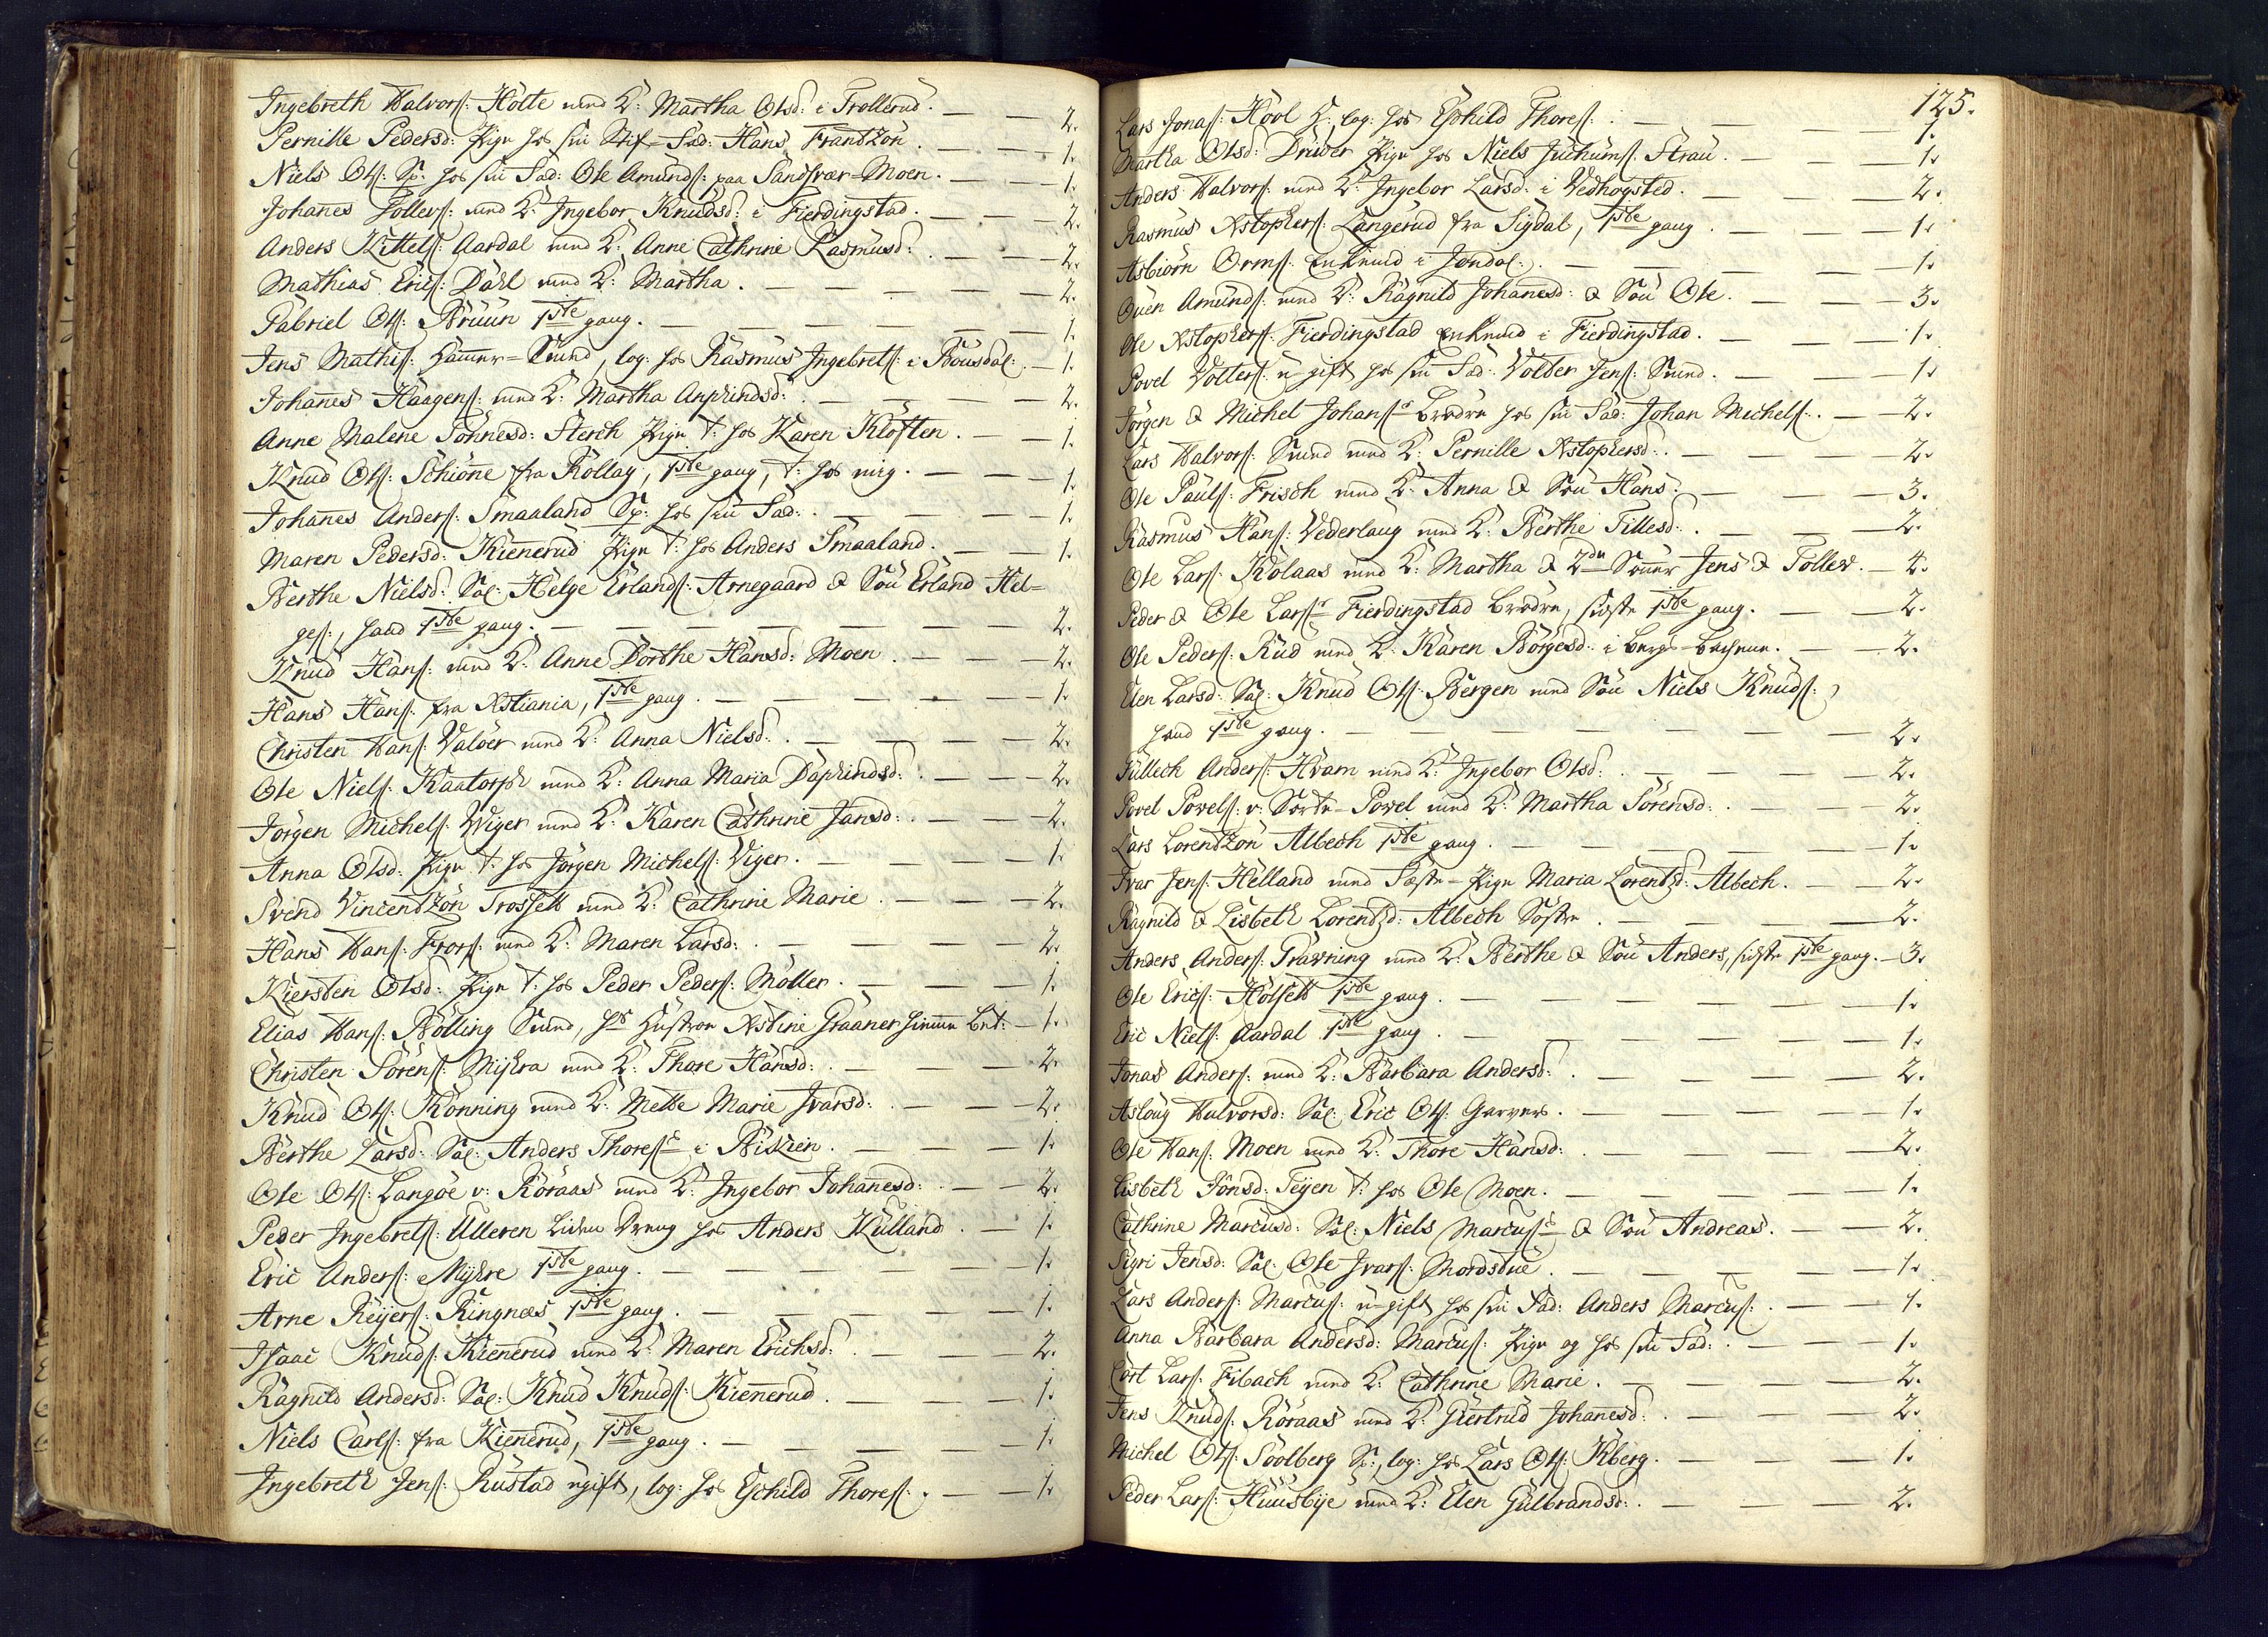 Ingebreth Halvors: Holte med K: Martha Olsd: i Trollerud. — — 2.
Pernille Pedersd: Pige hos sin Stif-Fad: Hans Frantzön. — — 1.
Niels Ols: Sv: hos sin Fad: Ole Amunds: paa Sandsvær-Moen. — — 1.
Johanes Tollevs: med K: Ingebor Knudsd: i Fierdingstad. — — 2.
Anders Kittels: Aardal med K: Anne Cathrine Rasmusd: — — 2.
Mathias Erics: Dahl med K: Martha. — — 2.
Gabriel Ols: Bruun 1ste gang. — — 1.
Jens Mathis: Hammer-Svend, log: hos Rasmus Ingebrets: i — 1.
Johanes Haagens: med K: Martha Asprindsd: — — 2.
Anne Malene Tonnesd: Sterch Pige t: hos Karen Klöften. — — 1.
Knud Ols: Schiöne fra Rollag, 1ste gang, t: hos mig. — — 1.
Johanes Anders: Smaaland Sv: hos sin Fad: — — 1.
Maren Pedersd: Kiennerud Pige t: hos Anders Smaaland. — — 1.
Berthe Nielsd: Sal: Helge Erlands: Arnegaard & Sön Erland Hel-
ges:, hand 1ste gang. — — 2.
Knud Hans: med K: Anne Dorthe Hansd: Moen. — — 2.
Hans Hans: fra Xstiania, 1ste gang. — — 1.
Christen Hans: Valöer med K: Anna Nielsd: — — 2.
Ole Niels: Kaatorp med K: Anna Maria — — 2.
Jörgen Michels: Wiger med K: Karen Cathrine Jansd: — — 2.
Anna Olsd: Pige t: hos Jörgen Michels: Viger. — — 1.
Svend Vincentzön Trossett med K: Cathrine Marie. — — 2.
Hans Hans: Frors: med K: Maren Larsd: — — 2.
Kiersten Olsd: Pige t: hos Peder Peders: Möller. — — 1.
Elias Hans: Bölling Svend, hs Hustroe Xstine Graaner — 1.
Christen Sörens: Myhra med K: Thore Hansd: — — 2.
Knud Ols: Rönning med K: Mette Marie Ivarsd: — — 2.
Berthe Larsd: Sal: Anders Thoress i — — 1.
Ole Ols: Langöe v: Röraas med K: Ingebor Johanesd: — — 2.
Peder Ingebrets: Ulleren liden Dreng hos Anders Kulland. — 1.
Eric Anders: Myhre 1ste gang. — — 1.
Arne Reijers: Ringnæs 1ste gang. — — 1.
Isaac Knuds: Kiennerud med K: Maren Erichsd: — — 2.
Ragnild Andersd: Sal: Knud Knuds: Kiennerud. — — 1.
Niels Carls: fra Kiennerud, 1ste gang. — — 1.
Ingebreth Jens: Rustad ugift, log: hos Eschild Thores: — — 1.
125.
Lars Jonas: Hool log: hos Eschild Thores: — — 1.
Martha Olsd: Driver Pige hos Niels Juchums: Strau. — — 1.
Anders Halvors: med K: Ingebor Larsd: i Vedhogsted. — — 2.
Rasmus Xstophers: Langerud fra Sigdal, 1ste gang. — — 1.
Asbiörn Orms: Enkemd i Jondal: — — 1.
Ouen Amunds: med K: Ragnild Johanesd: & Sön Ole. — — 3.
Ole Xstophers: Fierdingstad Enkemd i Fierdingstad. — — 1.
Povel Volters: ugift hos sin Fad: Volter Jens: Svend. — — 1.
Jörgen & Michel Johanss Brödre hos sin Fad: Johan Michels: — — 2.
Lars Halvors: Svend med K: Pernille Xstophersd: — — 2.
Ole Pauls: Frisch med K: Anna & Sön Hans. — — 3.
Rasmus Hans: Vederlaug med K: Berthe Tillesd: — — 2.
Ole Lars: Kolaas med K: Martha & 2de Sönner Jens & Tollev. — 4.
Peder & Ole Larss Fierdingstad Brödre, sidste 1ste gang. — — 2.
Ole Peders: Rud med K: Karen Börgesd: i — — 2.
Elen Larsd: Sal: Knud Ols: Bergen med Sön Niels Knuds:,
hand 1ste gang. — — 2.
Tullech Anders: Hvam med K: Ingebor Olsd: — — 2.
Povel Povels: v: Sorte-Povel med K: Martha Sörensd: — — 2.
Lars Lorentzön Albech 1ste gang. — — 1.
Ivar Jens: Helland med Fæste-Pige Maria Lorentzd: Albech. — — 2.
Ragnild & Lisbeth Lorentzd: Albech Söstre. — — 2.
Anders Anders: Gravning med K: Berthe & Sön Anders, sidste 1ste gang. — 3.
Ole Erics: Holsett 1ste gang. — — 1.
Eric Niels: Aardal 1ste gang. — — 1.
Jonas Anders: med K: Barbara Andersd: — — 2.
Aslaug Halvorsd: Sal: Eric Ols: Garvers. — — 1.
Ole Hans: Moen med K: Thore Hansd: — — 2.
Lisbeth Jonsd: Teijen t: hos Ole Moen. — — 1.
Cathrine Marcusd: Sal: Niels Marcuss & Sön Andreas. — — 2.
Sigri Jensd: Sal: Ole Ivars: Mordstue. — — 1.
Lars Anders: Marcus: ugift hos sin Fad: Anders Marcus: — — 1.
Anna Barbara Andersd: Marcus: Pige og hos sin Fad: — — 1.
Cort Lars: Fibach med K: Cathrine Marie. — — 2.
Jens Knuds: Röraas med K: Giertrud Johanesd: — — 2.
Michel Ols: Soolberg Sv:, log: hos Lars Ols: Kberg. — — 1.
Peder Lars: Huusbije med K: Elen Gulbrandsd: — — 2.